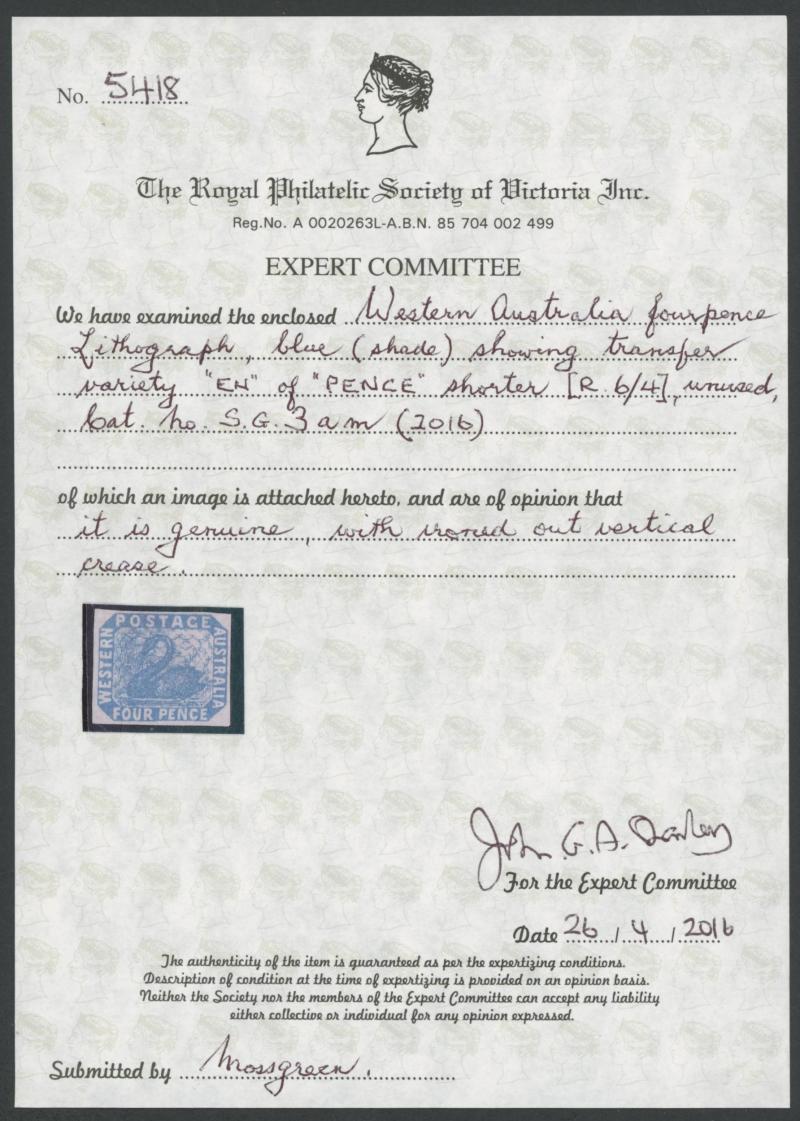 No. 5418
The Royal Philatelic Society of Victoria Inc.
Reg.No. A 0020263L-A.B.N. 85 704 002 499
EXPERT COMMITTEE
We have examined the enclosed Western Australia fourpence
Lithograph, blue (shade) showing transfer
variety "EN" of "PENCE" shorter [R. 6/4], unused,
Cat. no. S.G. 3am (2016)
of which an image is attached hereto, and are of opinion that
it is genuine, with ironed out vertical
crease.
POSTAGE
WESTERN
AUSTRALIA
FOUR PENCE
John G.A.
For the Expert Committee
Date 26/4/2016
The authenticity of the item is guaranteed as per the expertizing conditions.
Description of condition at the time of expertizing is provided on an opinion basis.
Neither the Society nor the members of the Expert Committee can accept any liability
either collective or individual for any opinion expressed.
Submitted by Mossgreen.